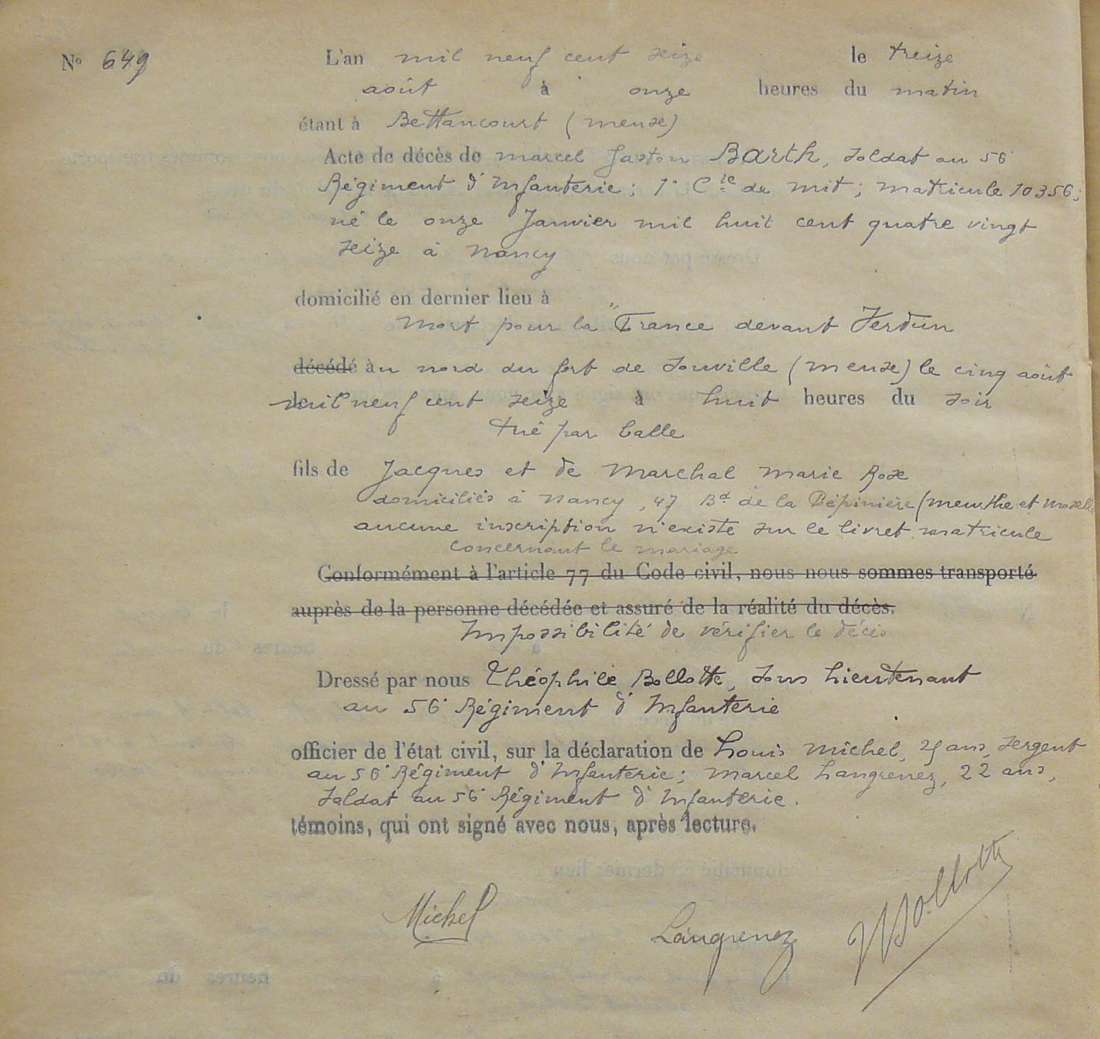 N° 649
L'an mil neuf cent seize le treize
août à onze heures du matin
étant à Bettancourt (meuse)
Acte de décès de marcel gaston Barth, soldat au 56
Régiment d'Infanterie; 1° Cie de mit; matricule 10356;
né le onze Janvier mil huit cent quatre vingt
seize à nancy
domicilié en dernier lieu à
"mort pour la France devant Verdun
décédé au nord du fort de Souville (meuse) le cinq août
mil neuf cent seize à huit heures du soir
tué par balle
fils de Jacques et de Marchal marie Rose
domiciliés à nancy, 47 Bd de la Pépinière (meurthe et moselle
aucune inscription n'existe sur le livret matricule
concernant le mariage
Conformément à l'article 77 du Code civil, nous nous sommes transporté
auprès de la personne décédée et assuré de la réalité du décès.
Impossibilité de vérifier le décès
Dressé par nous Théophile Bollotte, sous Lieutenant
au 56 Régiment d'Infanterie
officier de l'état civil, sur la déclaration de Louis Michel, ans, sergent
au 56 Régiment d'Infanterie; marcel Langrenez, 22 ans,
soldat au 56 Régiment d'Infanterie.
témoins, qui ont signé avec nous, après lecture.
Michel Langrenez Bollotte